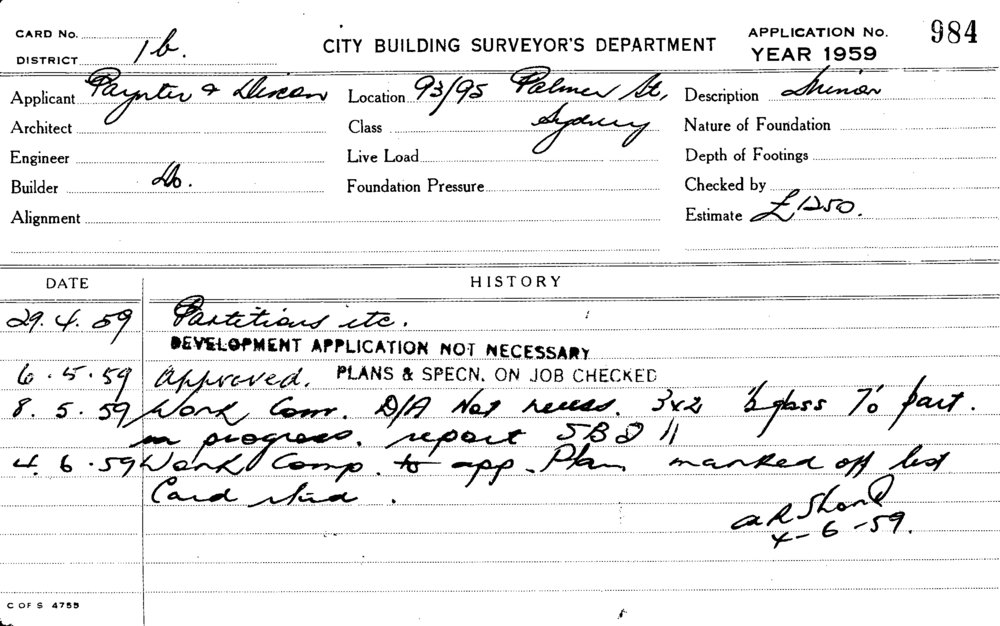 CARD No.
CITY BUILDING SURVEYOR'S DEPARTMENT
APPLICATION No. 984
YEAR 1959
DISTRICT 1b.
Applicant Paynter & Dixon Location 93/95 Palmer St, Description Minor
Architect Class Sydney Nature of Foundation
Engineer Live Load Depth of Footings
Builder Do. Foundation Pressure Checked by
Alignment Estimate £1250.
DATE HISTORY
29.4.59 Partitions etc.
DEVELOPMENT APPLICATION NOT NECESSARY
6.5.59 Approved. PLANS & SPECN. ON JOB CHECKED
8.5.59 Work Com. D/A Not necess. 3x2 glass 7'0 part.
in progress. report
4.6.59 Work Comp. to app. Plan marked off list
Card
4-6-59.
C OF S 4755